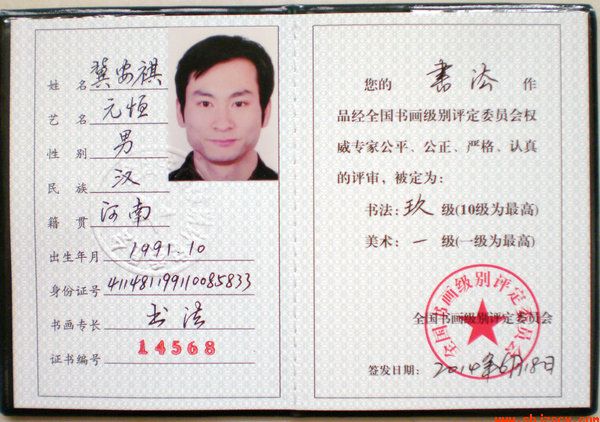 姓 名 冀安祺
艺 名 元恒
性 别 男
民 族 汉
籍 贯 河南
出生年月 1991.10
身份证号 411481199110085833
书画专长 书法
证书编号 14568
您的 书法 作
品经全国书画级别评定委员会权
威专家公平、公正、严格、认真
的评审，被定为：
书法：玖 级(10级为最高)
美术：一 级(一级为最高)
全国书画级别评定委员会
全国书画级别评定委员会
签发日期：2014年6月18日